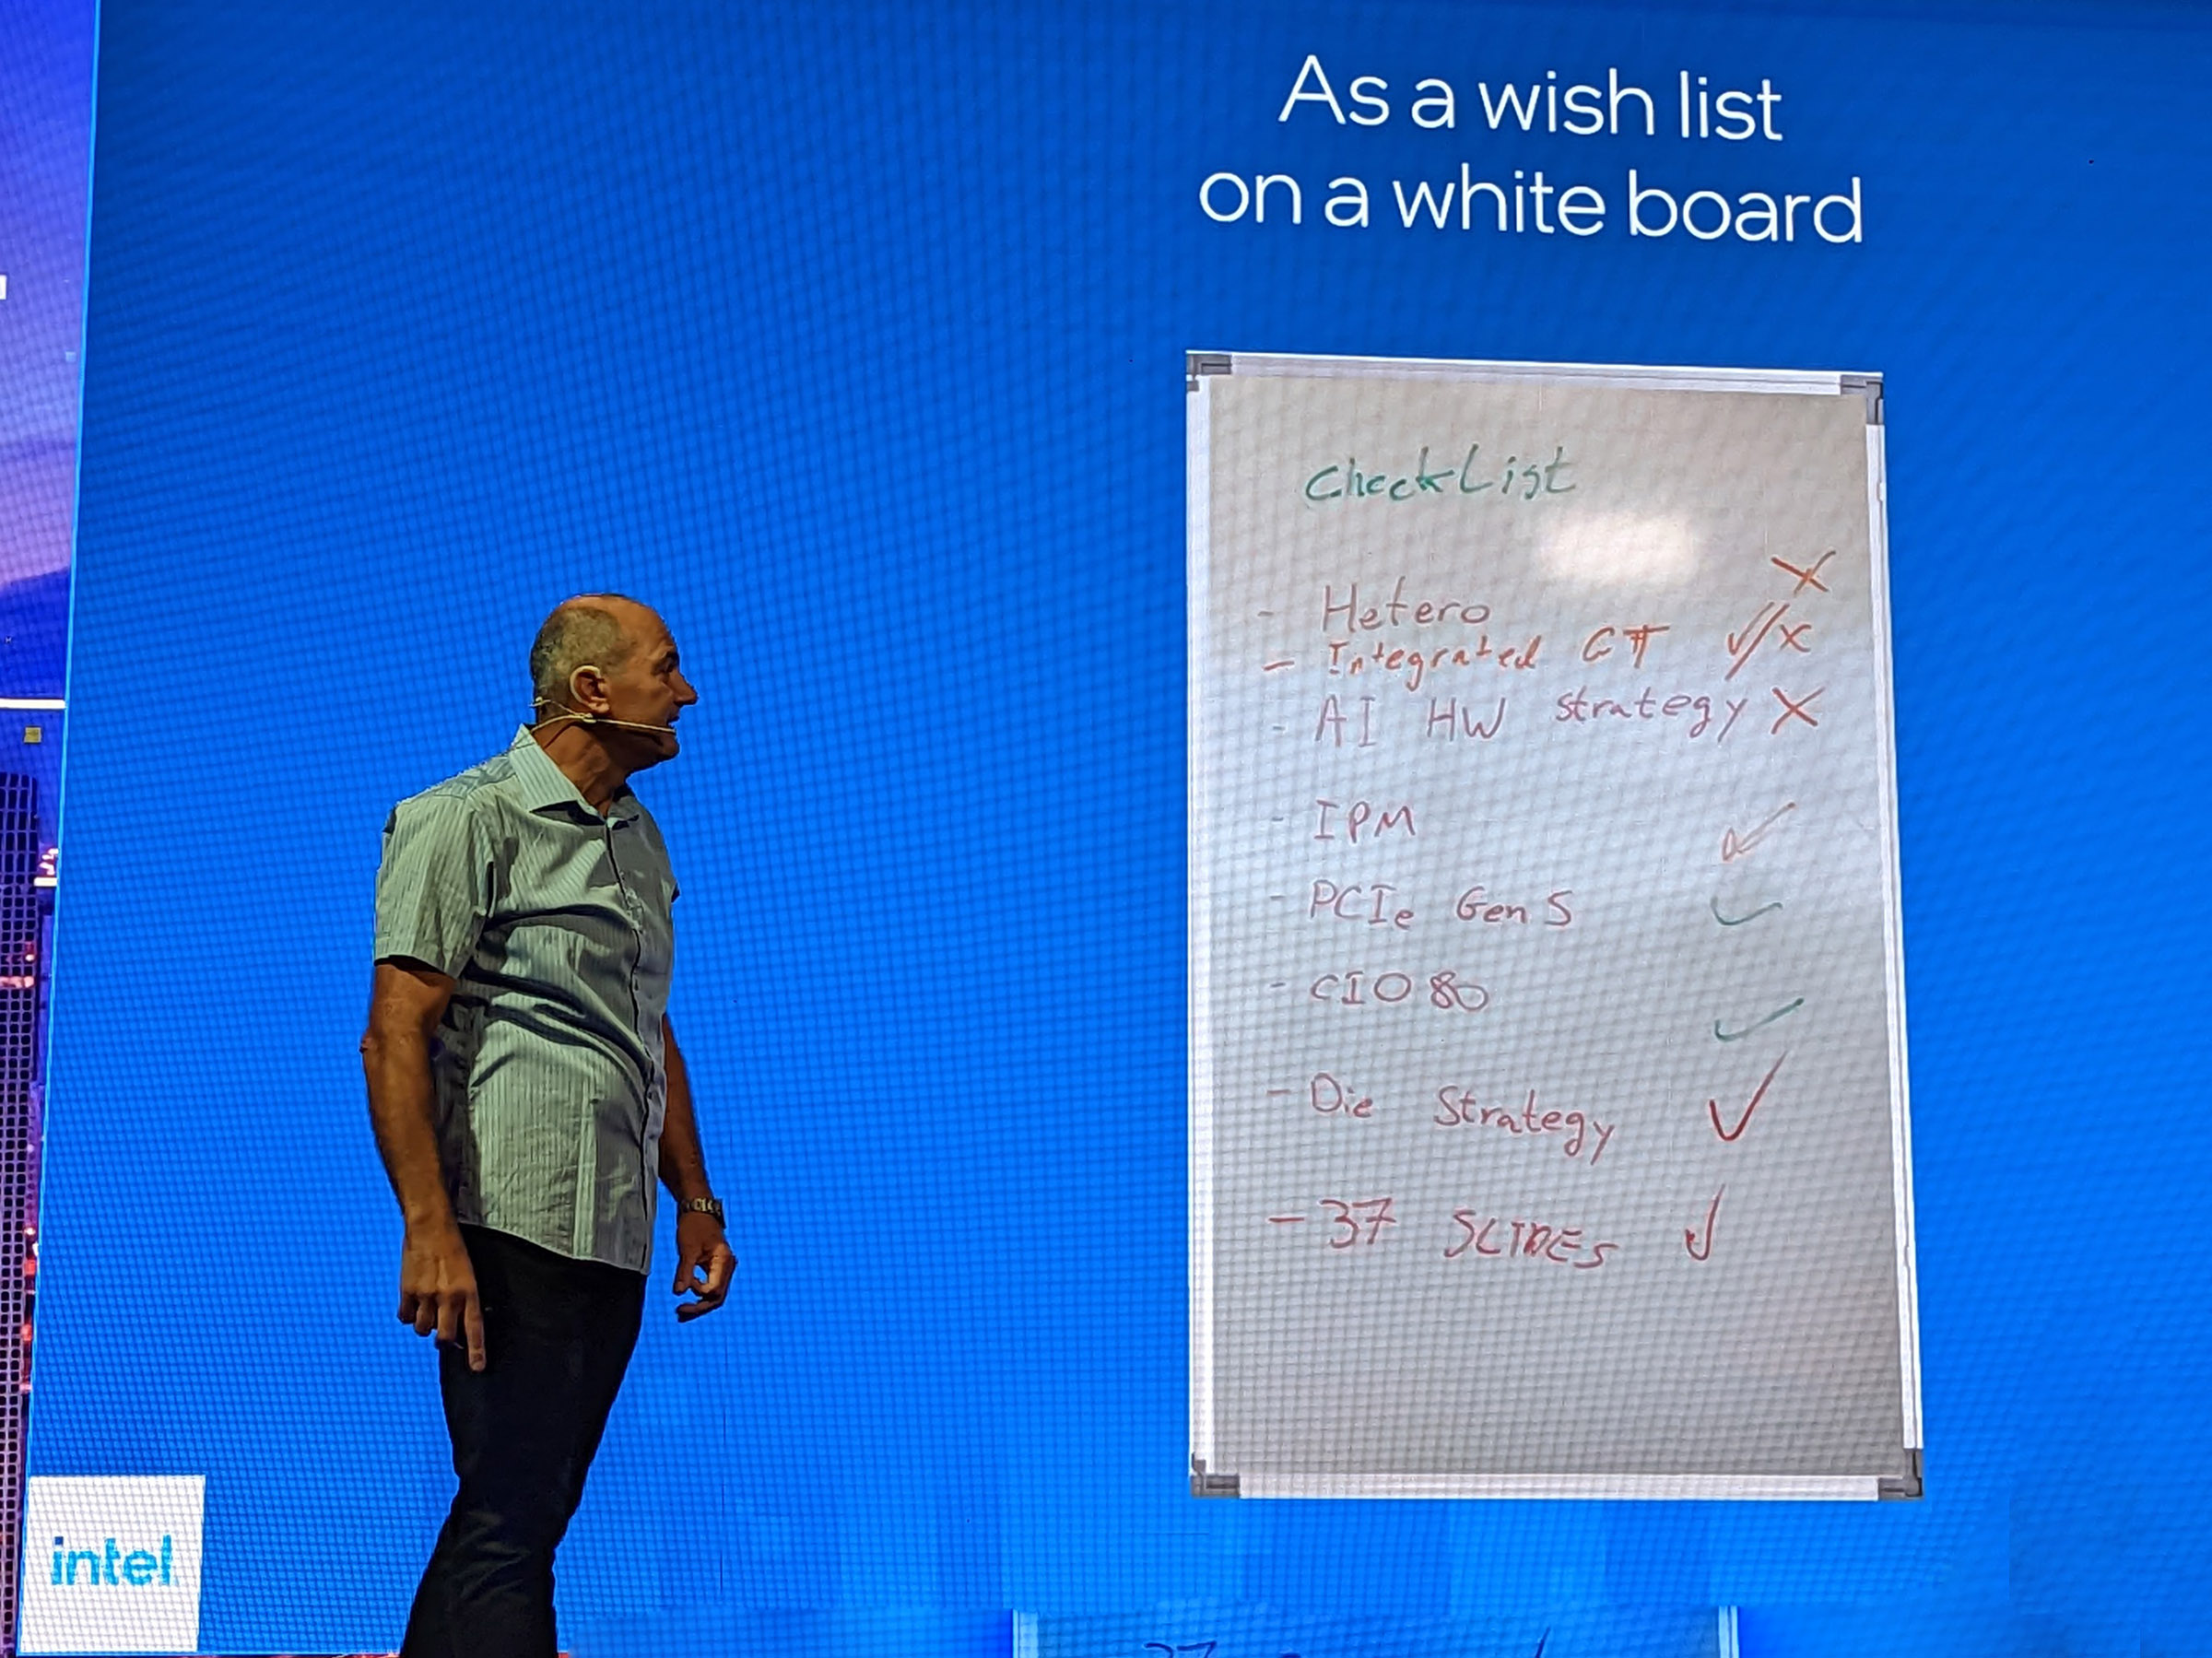 As a wish list
on a white board
CheckList
- Hetero X
- Integrated GT ✓/x
- AI HW strategy X
- IPM ✓
- PCIe Gen 5 ✓
- CIO 80 ✓
- Die Strategy ✓
- 37 SLIDES ✓
intel